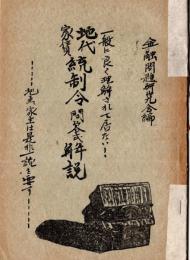 金融問題研究会編
一般に良く理解されて居ない!
地代
家賃
統制令問答式解説
地主家主は是非一読を要す